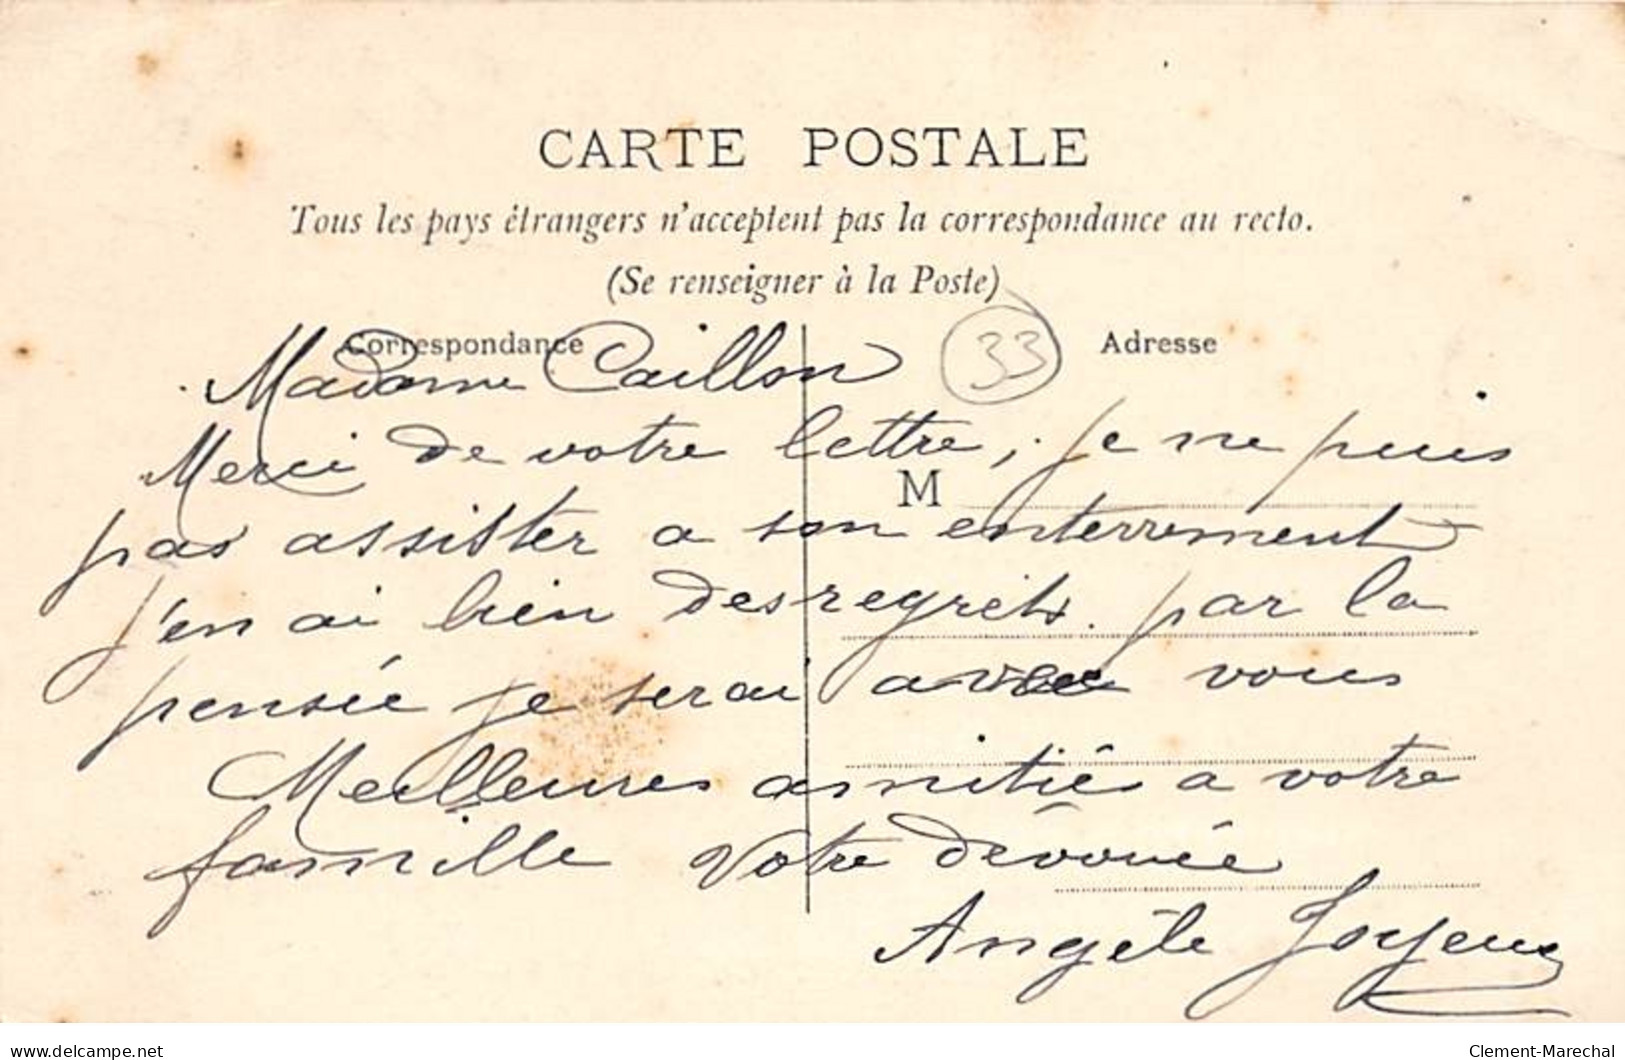 CARTE POSTALE
Tous les pays étrangers n'acceptent pas la correspondance au recto.
(Se renseigner à la Poste)
Correspondance
33
Adresse
Madame Caillon
Merci de votre lettre, je ne puis
M
pas assister a son enterrement
j'en ai bien des regrets. par la
pensée je serai avec vous
Meilleures amitiés a votre
famille Votre dévouée
Angèle Joyeux
delcampe.net
Clement-Marechal